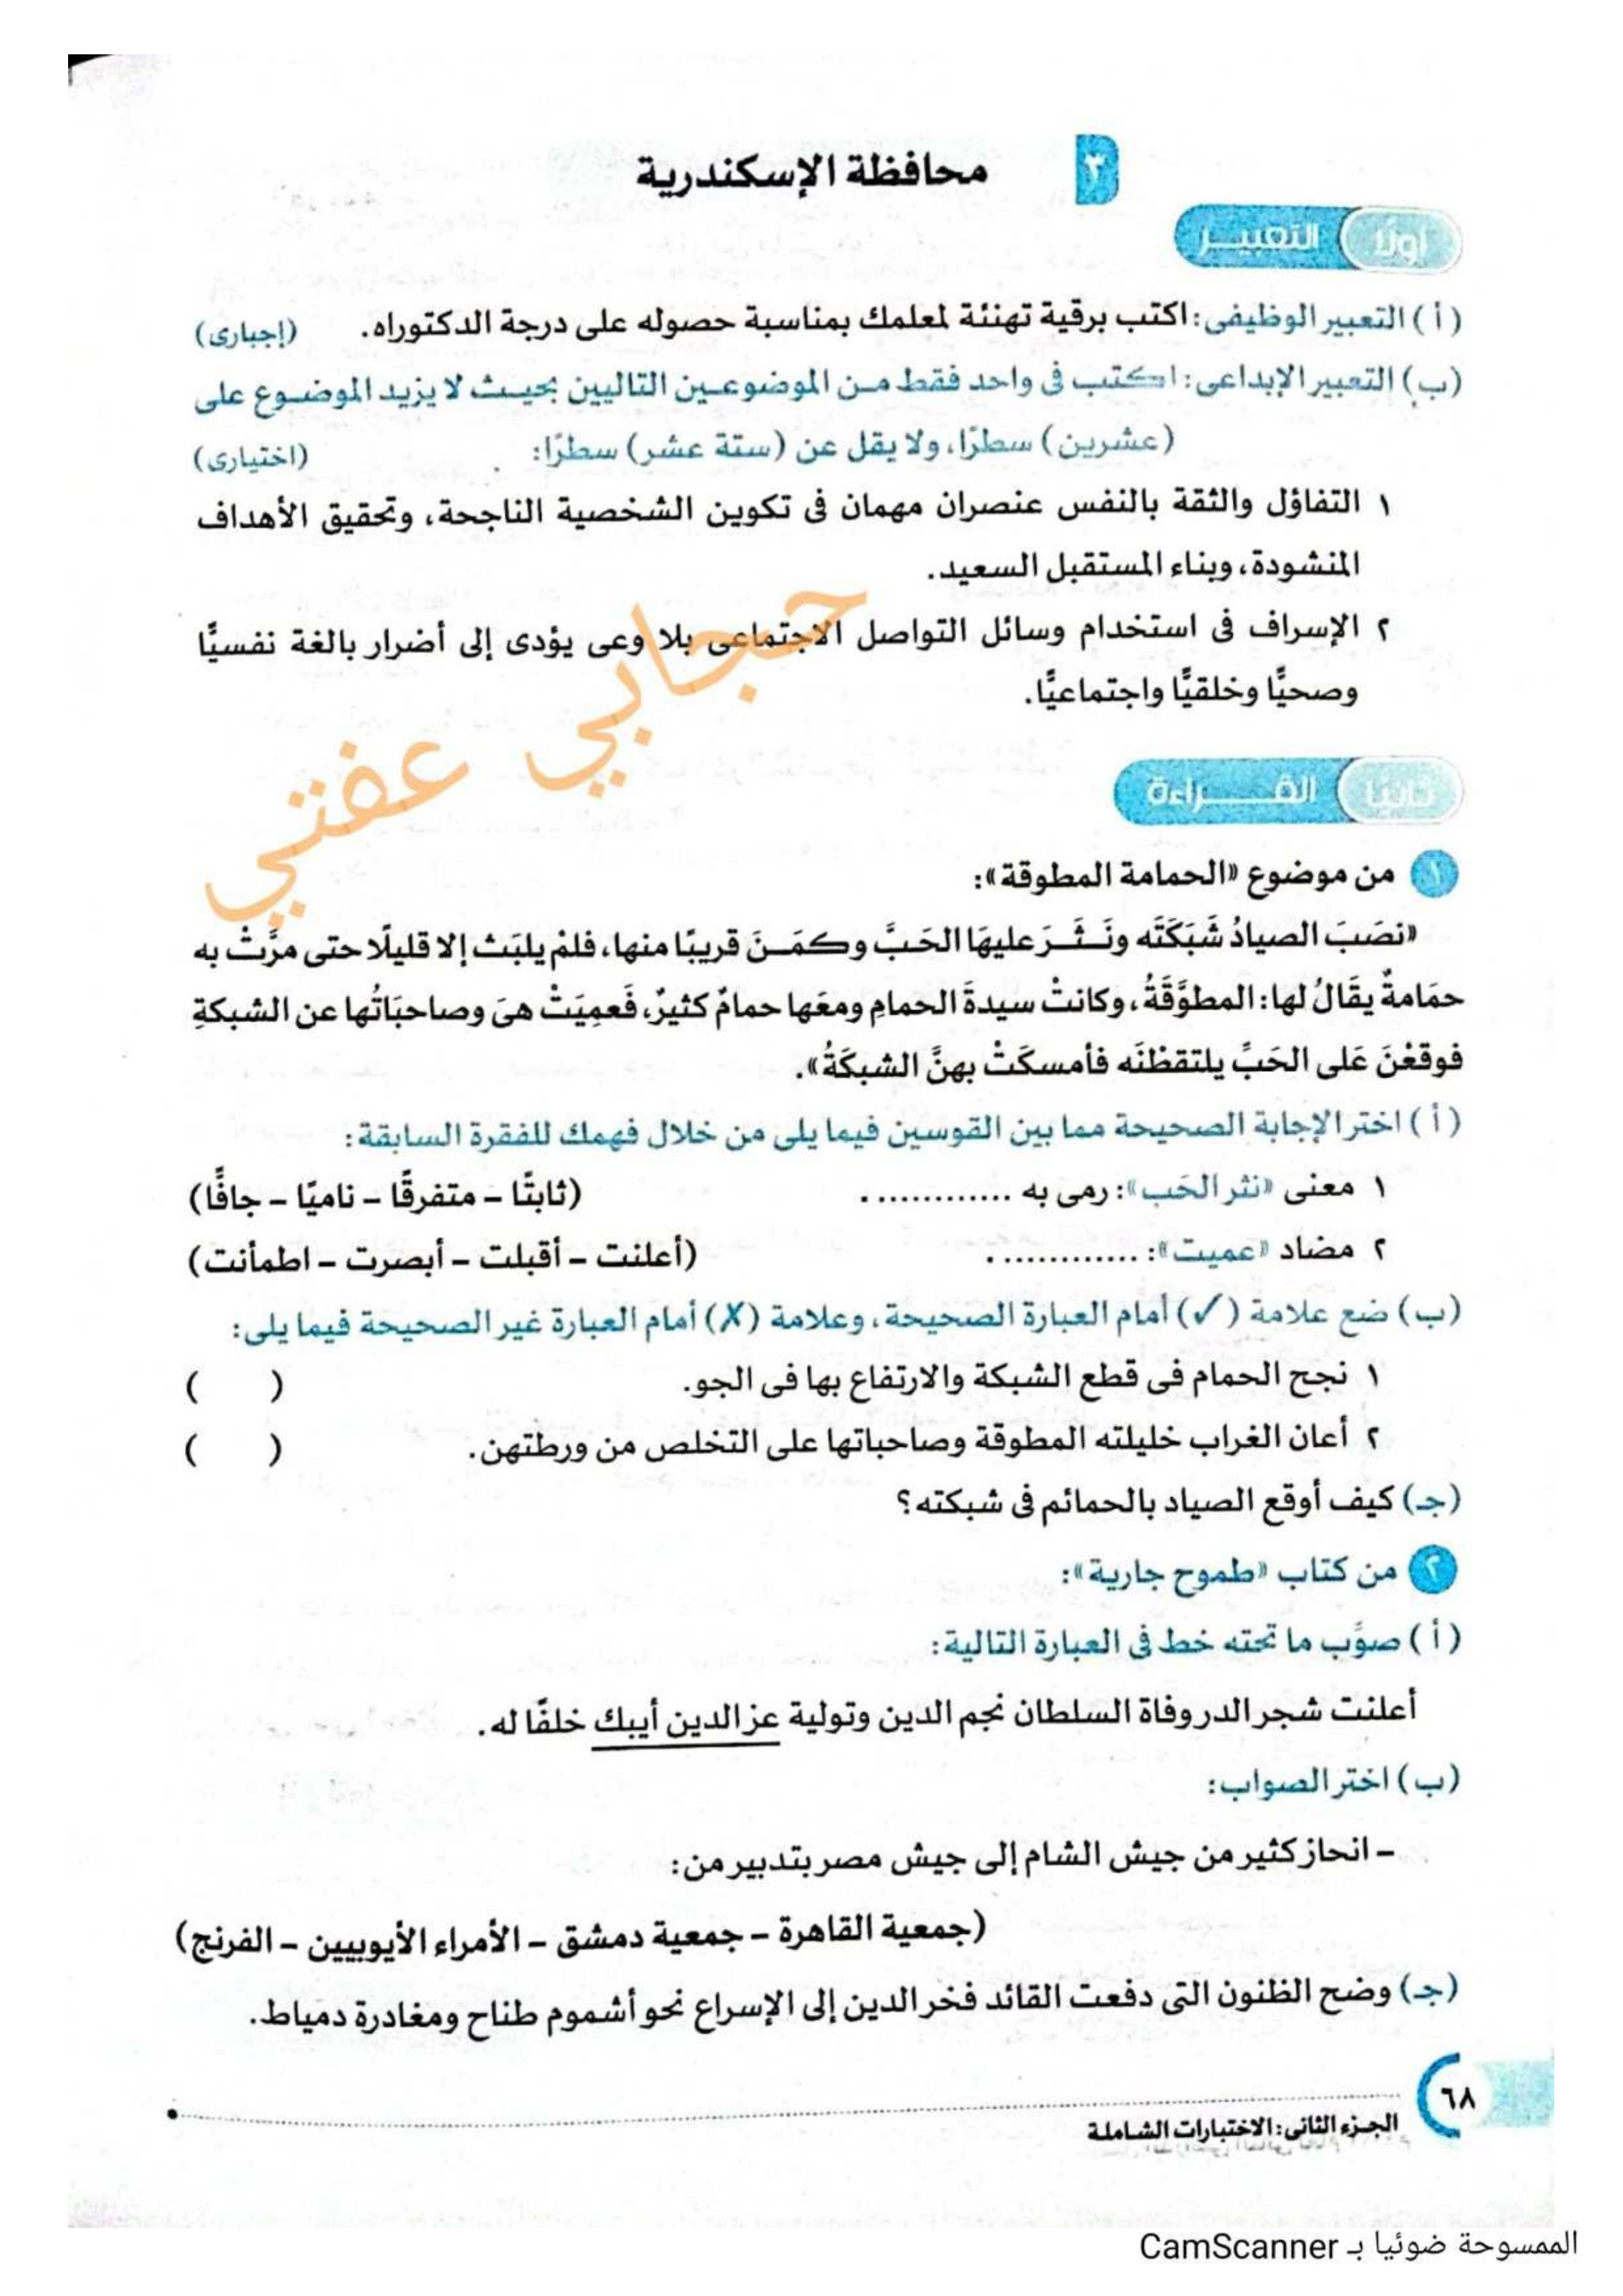 ٣
محافظة الإسكندرية
أولًا التعبير
(أ) التعبير الوظيفى: اكتب برقية تهنئة لمعلمك بمناسبة حصوله على درجة الدكتوراه. (إجبارى)
(ب) التعبير الإبداعى: اكتب فى واحد فقط من الموضوعين التاليين بحيث لا يزيد الموضوع على
(عشرين) سطرًا، ولا يقل عن (ستة عشر) سطرًا: (اختيارى)
١ التفاؤل والثقة بالنفس عنصران مهمان فى تكوين الشخصية الناجحة، وتحقيق الأهداف
المنشودة، وبناء المستقبل السعيد.
٢ الإسراف فى استخدام وسائل التواصل الاجتماعى بلا وعى يؤدى إلى أضرار بالغة نفسيًّا
وصحيًّا وخلقيًّا واجتماعيًّا.
حجابي عفتي
ثانيًا القراءة
١ من موضوع «الحمامة المطوقة»:
«نصَبَ الصيادُ شَبَكَتَه ونَثَرَ عليهَا الحَبَّ وكمَنَ قريبًا منها، فلمْ يلبَث إلا قليلًا حتى مرَّتْ به
حمَامةٌ يقَالُ لها: المطوَّقَةُ، وكانتْ سيدةَ الحمامِ ومعَها حمامٌ كثيرٌ، فَعمِيَتْ هىَ وصاحبَاتُها عن الشبكةِ
فوقعْنَ عَلى الحَبِّ يلتقطْنَه فأمسكَتْ بهنَّ الشبكَةُ».
(أ) اختر الإجابة الصحيحة مما بين القوسين فيما يلى من خلال فهمك للفقرة السابقة:
١ معنى «نثر الحَب»: رمى به ............. (ثابتًا – متفرقًا – ناميًا – جافًّا)
٢ مضاد «عميت»: ............. (أعلنت – أقبلت – أبصرت – اطمأنت)
(ب) ضع علامة (✓) أمام العبارة الصحيحة، وعلامة (✗) أمام العبارة غير الصحيحة فيما يلى:
١ نجح الحمام فى قطع الشبكة والارتفاع بها فى الجو. ( )
٢ أعان الغراب خليلته المطوقة وصاحباتها على التخلص من ورطتهن. ( )
(جـ) كيف أوقع الصياد بالحمائم فى شبكته؟
٢ من كتاب «طموح جارية»:
(أ) صوِّب ما تحته خط فى العبارة التالية:
أعلنت شجر الدر وفاة السلطان نجم الدين وتولية عز الدين أيبك خلفًا له.
(ب) اختر الصواب:
– انحاز كثير من جيش الشام إلى جيش مصر بتدبير من:
(جمعية القاهرة – جمعية دمشق – الأمراء الأيوبيين – الفرنج)
(جـ) وضح الظنون التى دفعت القائد فخر الدين إلى الإسراع نحو أشموم طناح ومغادرة دمياط.
٦٨
الجزء الثانى: الاختبارات الشاملة
الممسوحة ضوئيا بـ CamScanner